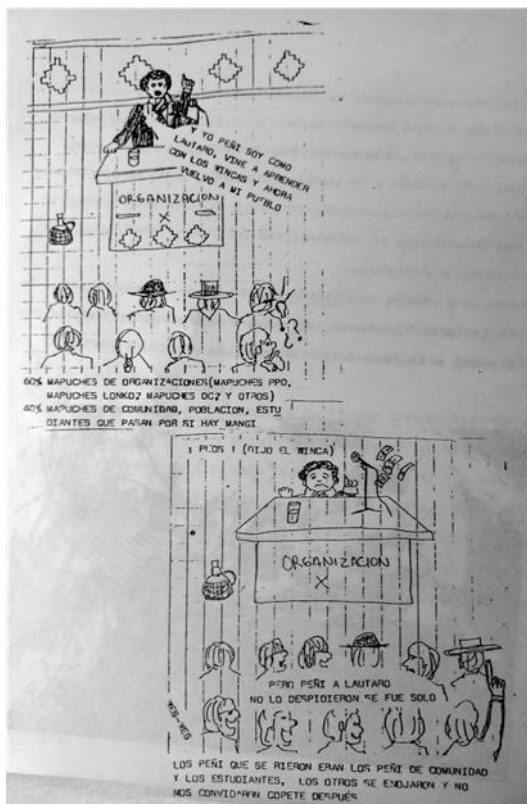 Y YO PEÑI SOY COMO
LAUTARO, VINE A APRENDER
CON LOS WINCAS Y AHORA
VUELVO A MI PUEBLO
ORGANIZACION
X
60% MAPUCHES DE ORGANIZACIONES(MAPUCHES PPD,
MAPUCHES LONKO? MAPUCHES DC? Y OTROS)
40% MAPUCHES DE COMUNIDAD, POBLACION, ESTU
DIANTES QUE PASAN POR SI HAY MANGI
(DIJO EL WINCA)
ORGANIZACION
X
PERO PEÑI A LAUTARO
NO LO DESPIDIERON SE FUE SOLO
LOS PEÑI QUE SE RIERON ERAN LOS PEÑI DE COMUNIDAD
Y LOS ESTUDIANTES, LOS OTROS SE ENOJARON Y NO
NOS CONVIDARON COPETE DESPUÉS